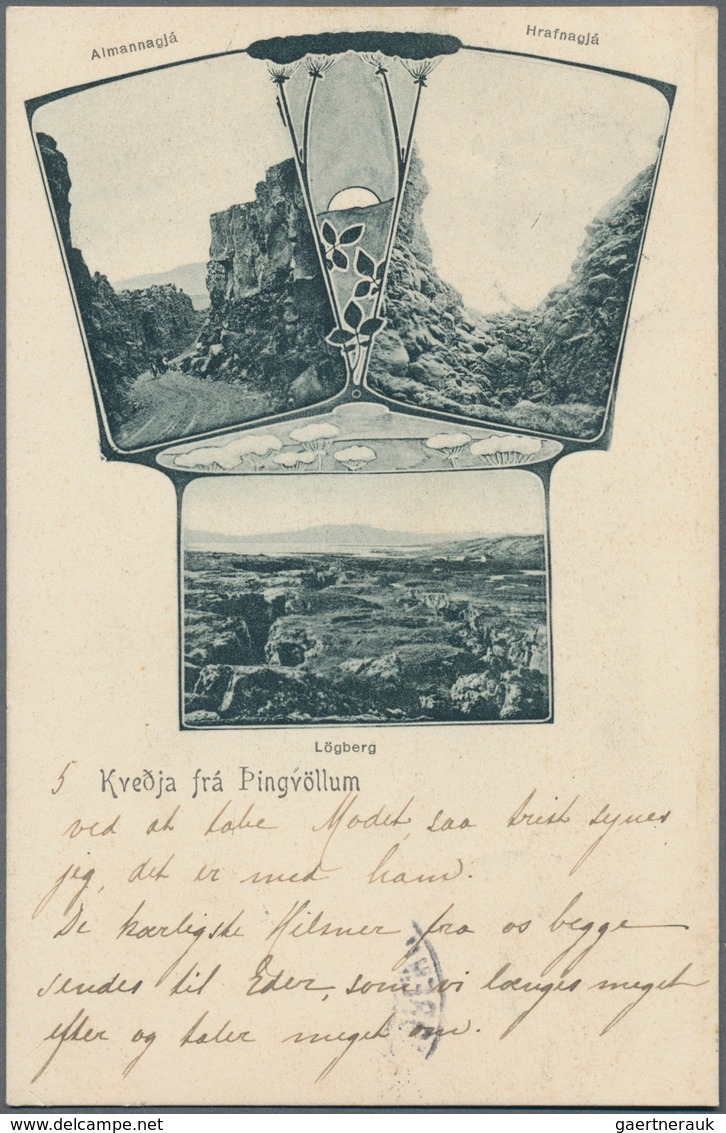 Almannagjá
Hrafnagjá
Lögberg
5 Kveðja frá Þingvöllum
ved at tabe Modet, saa trist synes
jeg, det er med ham.
De kærligste Hilsner fra os begge
sendes til Eder, som vi længes meget
efter og taler meget om.
delcampe.net
gaertnerauk